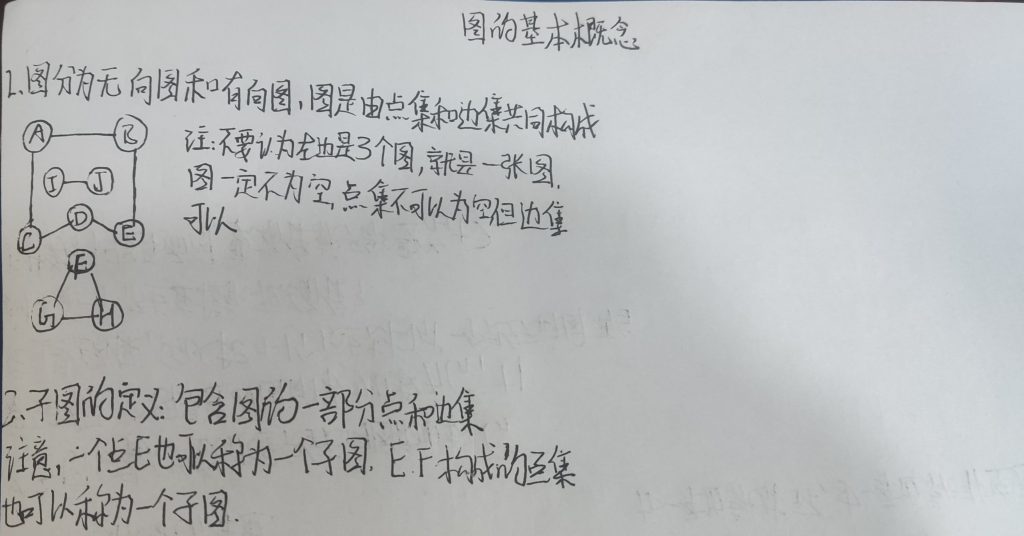 图的基本概念
1.图分为无向图和有向图,图是由点集和边集共同构成
A B
注:不要认为左边是3个图,就是一张图.
I J
图一定不为空,点集不可以为空但边集
可以
D
C E
F
G H
2.子图的定义:包含图的一部分点和边集
注意,一个点E也可以称为一个子图.E.F构成的点集
也可以称为一个子图.